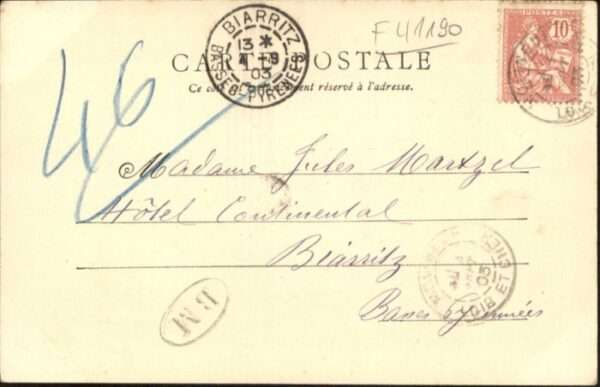 F 41190
BIARRITZ
13 *
4 -9
03
BASSES-PYRENEES
POSTES
10
CARTE POSTALE
Ce côté est exclusivement réservé à l'adresse.
46
Madame Jules Martzel
Hôtel Continental
Biarritz
Basses Pyrénées
03
LOIR-ET-CHER
BM